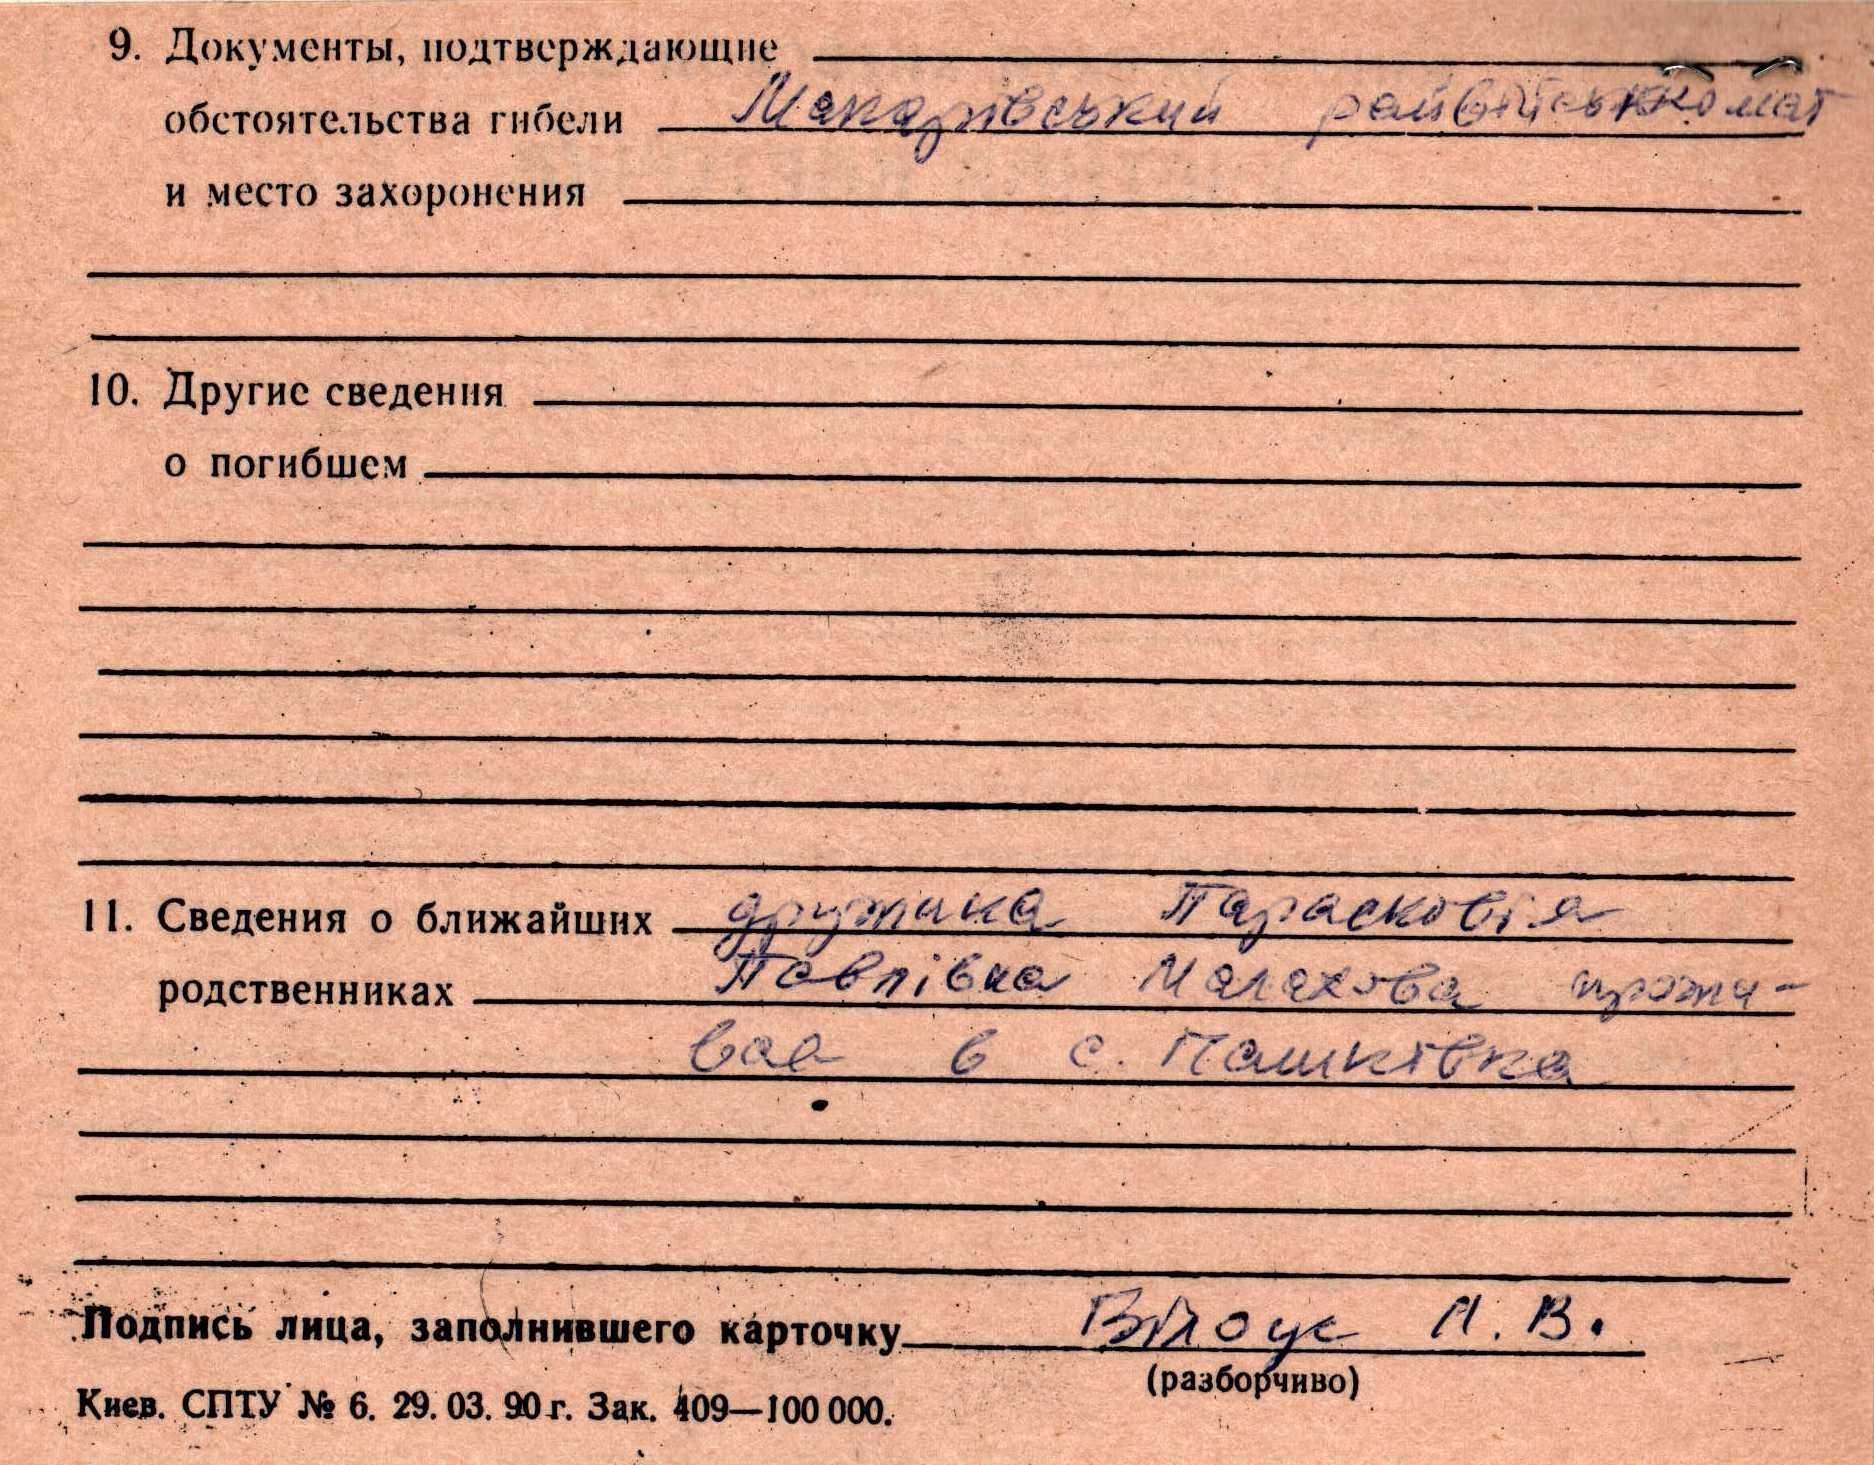 9. Документы, подтверждающие
обстоятельства гибели Макарівський райвійськкомат
и место захоронения
10. Другие сведения
о погибшем
11. Сведения о ближайших дружина Парасковія
родственниках Павлівна Малахова прожи-
ває в с. Пашківка
Подпись лица, заполнившего карточку Білоус Л. В.
(разборчиво)
Киев. СПТУ № 6. 29. 03. 90 г. Зак. 409—100 000.